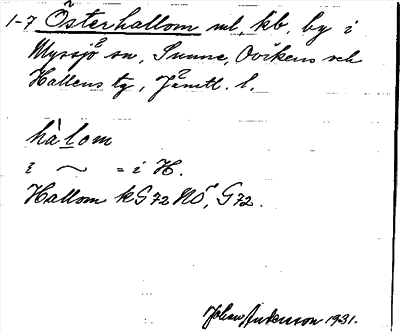 1-7 Österhallom ml, kb, by i
Myssjö sn, Sunne, Ovikens och
Hallens tg, Jämtl. l.
hàlom
i ~ = i H.
Hallom kG72NÖ, G72.
Johan Andersson 1931.